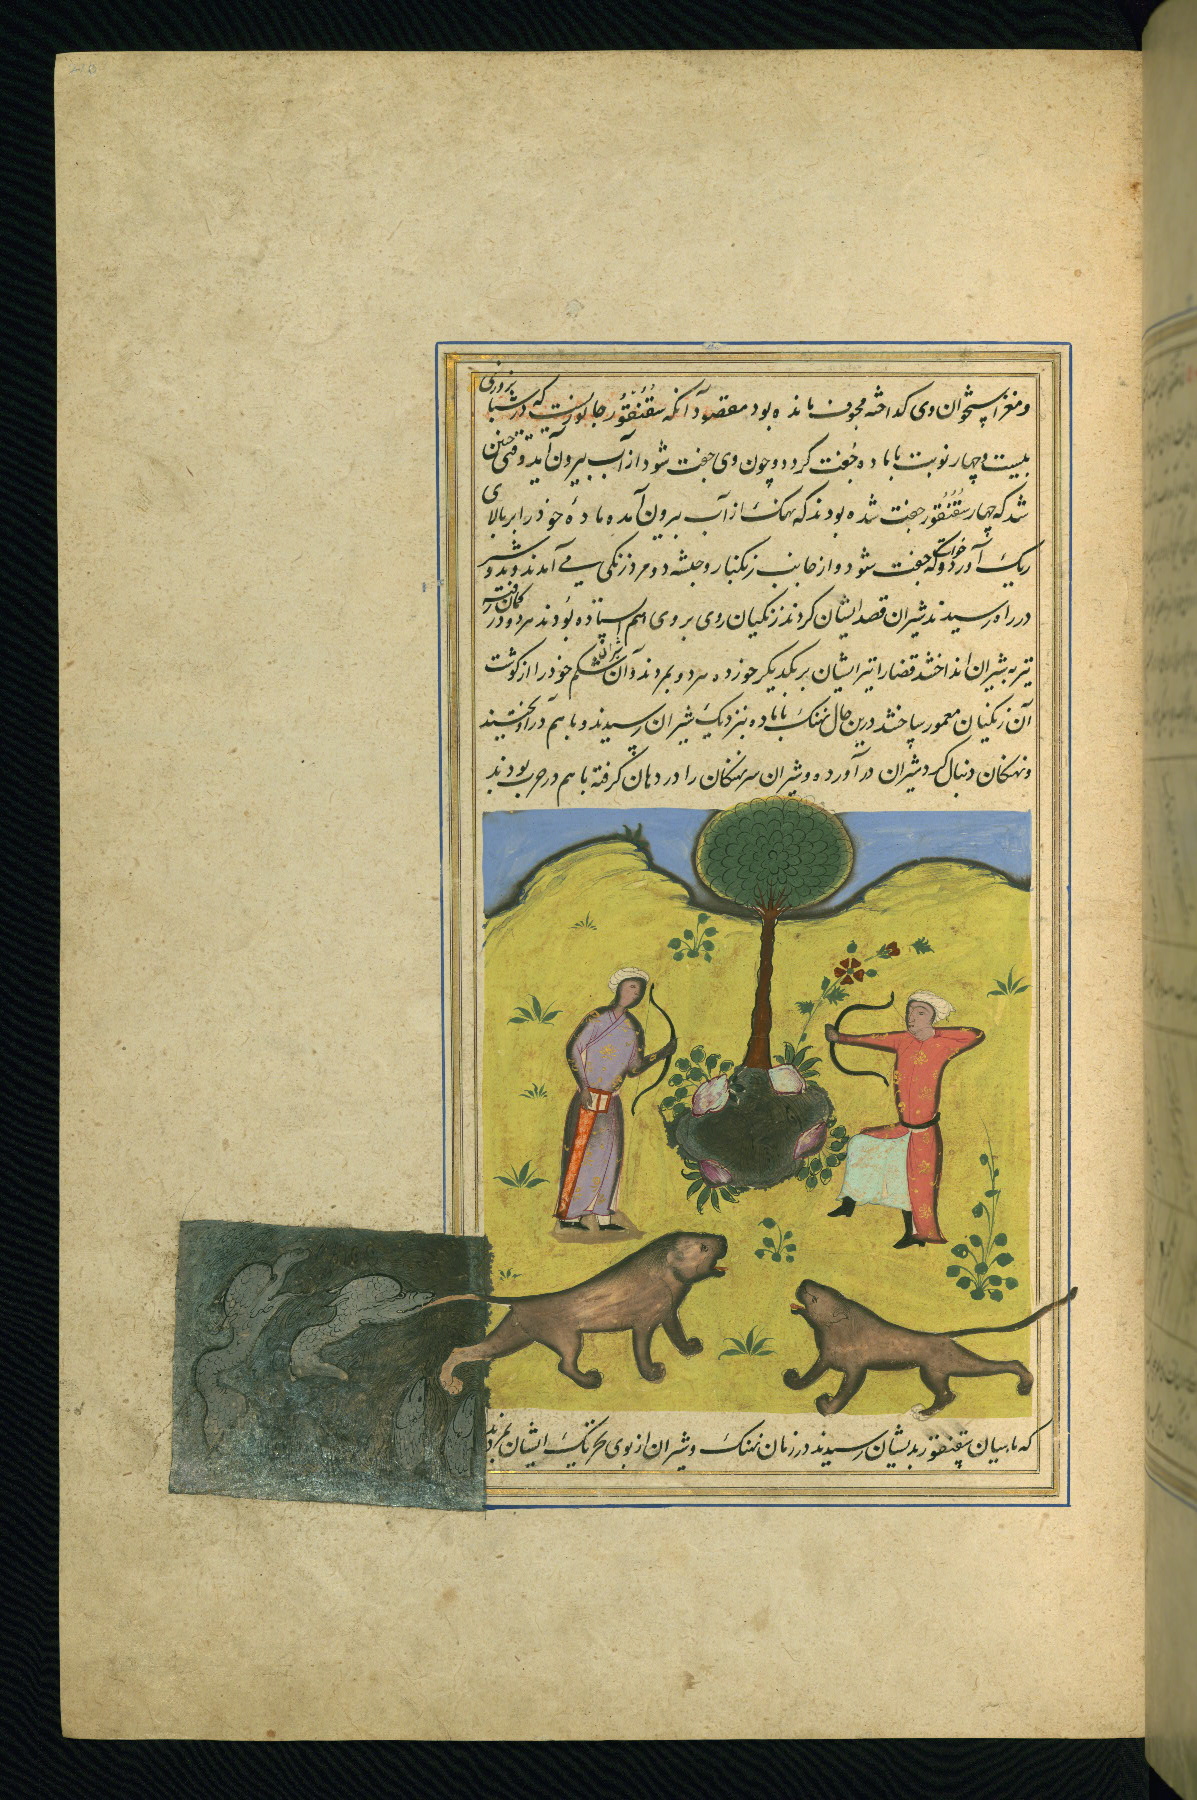 و مغز استخوان وی کداخته مجوف مانده بود مقصود آنکه سقنقور جانوریست که در شبا بزوزی
بیست و چهار نوبت با ماده جفت کردد و چون وی جفت شود از آب بیرون آید وقتی چنین
شد که چهار سقنقور جفت شده بودند که نهنک از آب بیرون آمده ماده خود را بر بالای
ریک آورد و خواست که جفت شود و از جانب زنکبار و حبشه دو مرد زنکی می آمدند و دو شیر
در راه رسیدند شیران قصد ایشان کردند زنکیان روی بر وی هم استاده بودند هر دو در کمان رفته
تیر به شیران انداختند قضا را تیر ایشان بر یکدیکر خورده هر دو بمردند و آن شیران شکم خود را از کوشت
آن زنکیان معمور ساختند درین حال نهنک با ماده بنزدیک شیران رسیدند و با هم در آویختند
و نهنکان دنبال شیران در آورده و شیران سر نهنکان را در دهان کرفته با هم در حرب بودند
که ماهیان سقنقور بدیشان رسیدند در زمان نهنک و شیران از بوی ایشان بمردند